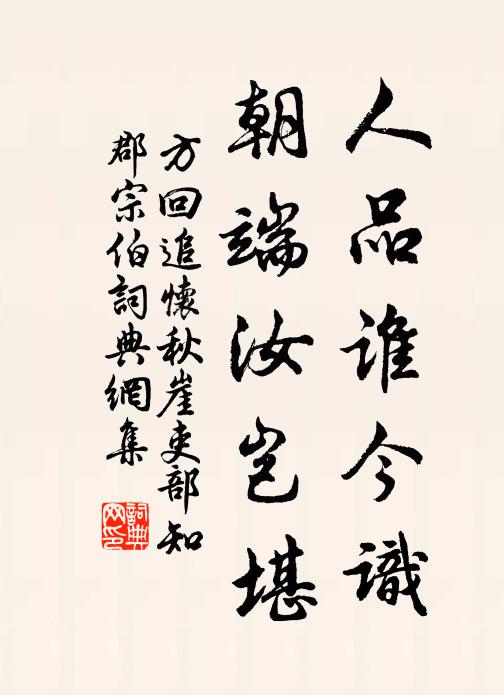 人品谁今識
朝端汝岂堪
方回追懷秋崖吏部知
郡宗伯詞典網集
詞典網印